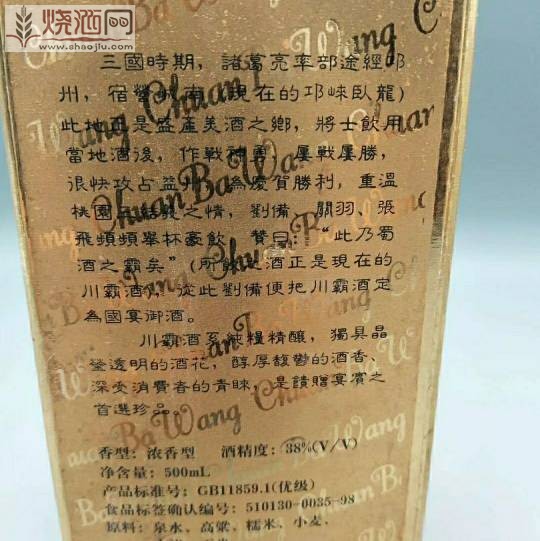 烧酒网
www.shaojiu.com
三國時期，諸葛亮率部途經邛
州，宿營 南 現在的邛崍臥龍)
此地 是盛產美酒之鄉，將士飲用
當地酒後，作戰神勇 屢戰屢勝，
很快攻占益州 為慶賀勝利，重溫
桃園 結義之情，劉備 關羽、張
飛頻頻舉杯豪飲 贊曰：“此乃蜀
酒之霸矣”(所 酒正是現在的
川霸酒 從此劉備便把川霸酒定
為國宴御酒。
川霸酒系純糧精釀，獨具晶
瑩透明的酒花，醇厚馥鬱的酒香、
深受消費者的青睞，是饋贈宴賓之
首選珍品
香型：浓香型 酒精度：38%(V/V)
净含量：500mL
产品标准号：GB11859.1(优级)
食品标签确认编号：510130-0035-98
原料：泉水、高粱、糯米、小麦、
Chuan Ba Wang